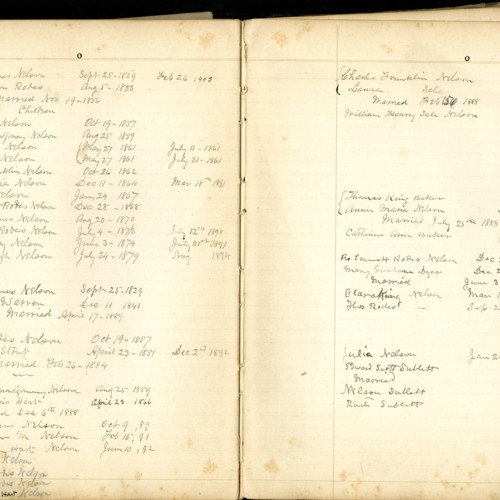 O
Nelson Sept-25-1829 Feb 26 1903
Rodes Aug 5-1833
Married Nov 19-1856
Children
Nelson Oct 19-1857
Nelson Aug 25 1859
Nelson May 27 1861 July 11-1861
Nelson May 27 1861 July 31-1861
Nelson Oct 26 1862
Nelson Dec 11-1864 Mar 18th 1891
Nelson Jany 24 1867
Rodes Nelson Dec 28-1868
Nelson Aug 20-1870
Rodes Nelson July 4-1872 July 12th 1890
Nelson June 3-1874 July 31st 1891
Nelson July 24-1879 Aug 1894
Nelson Sept-25-1829
Warren Dec 11 1841
Married April 17-1889
Nelson Oct 19-1857
April 23-1851 Dec 2nd 1892
Married Feb 26-1884
Montgomery Nelson Aug 25-1859
Hart April 23 1866
Dec 6th 1888
Nelson Oct 9, 89
M. Nelson Feb 15, 91
Hart Nelson June 10, 92
Nelson
Nelson
Nelson
Hart Nelson
O
Charles Franklin Nelson
Laura
Married Feb 1888
William Henry Nelson
Thomas King Baker
Annie Maria Nelson
Married July 25th 1888
Catherine Ann Baker
Ro Emmett Rodes Nelson Dec 2
Mary Graham Dyer Dec
Married June 3
Clara King Nelson Mar 1
Thos Rodes " Sep 2
Julia Nelson Jan 2
Edward Scott Sublett
Married
Nelson Sublett
Ruth Sublett